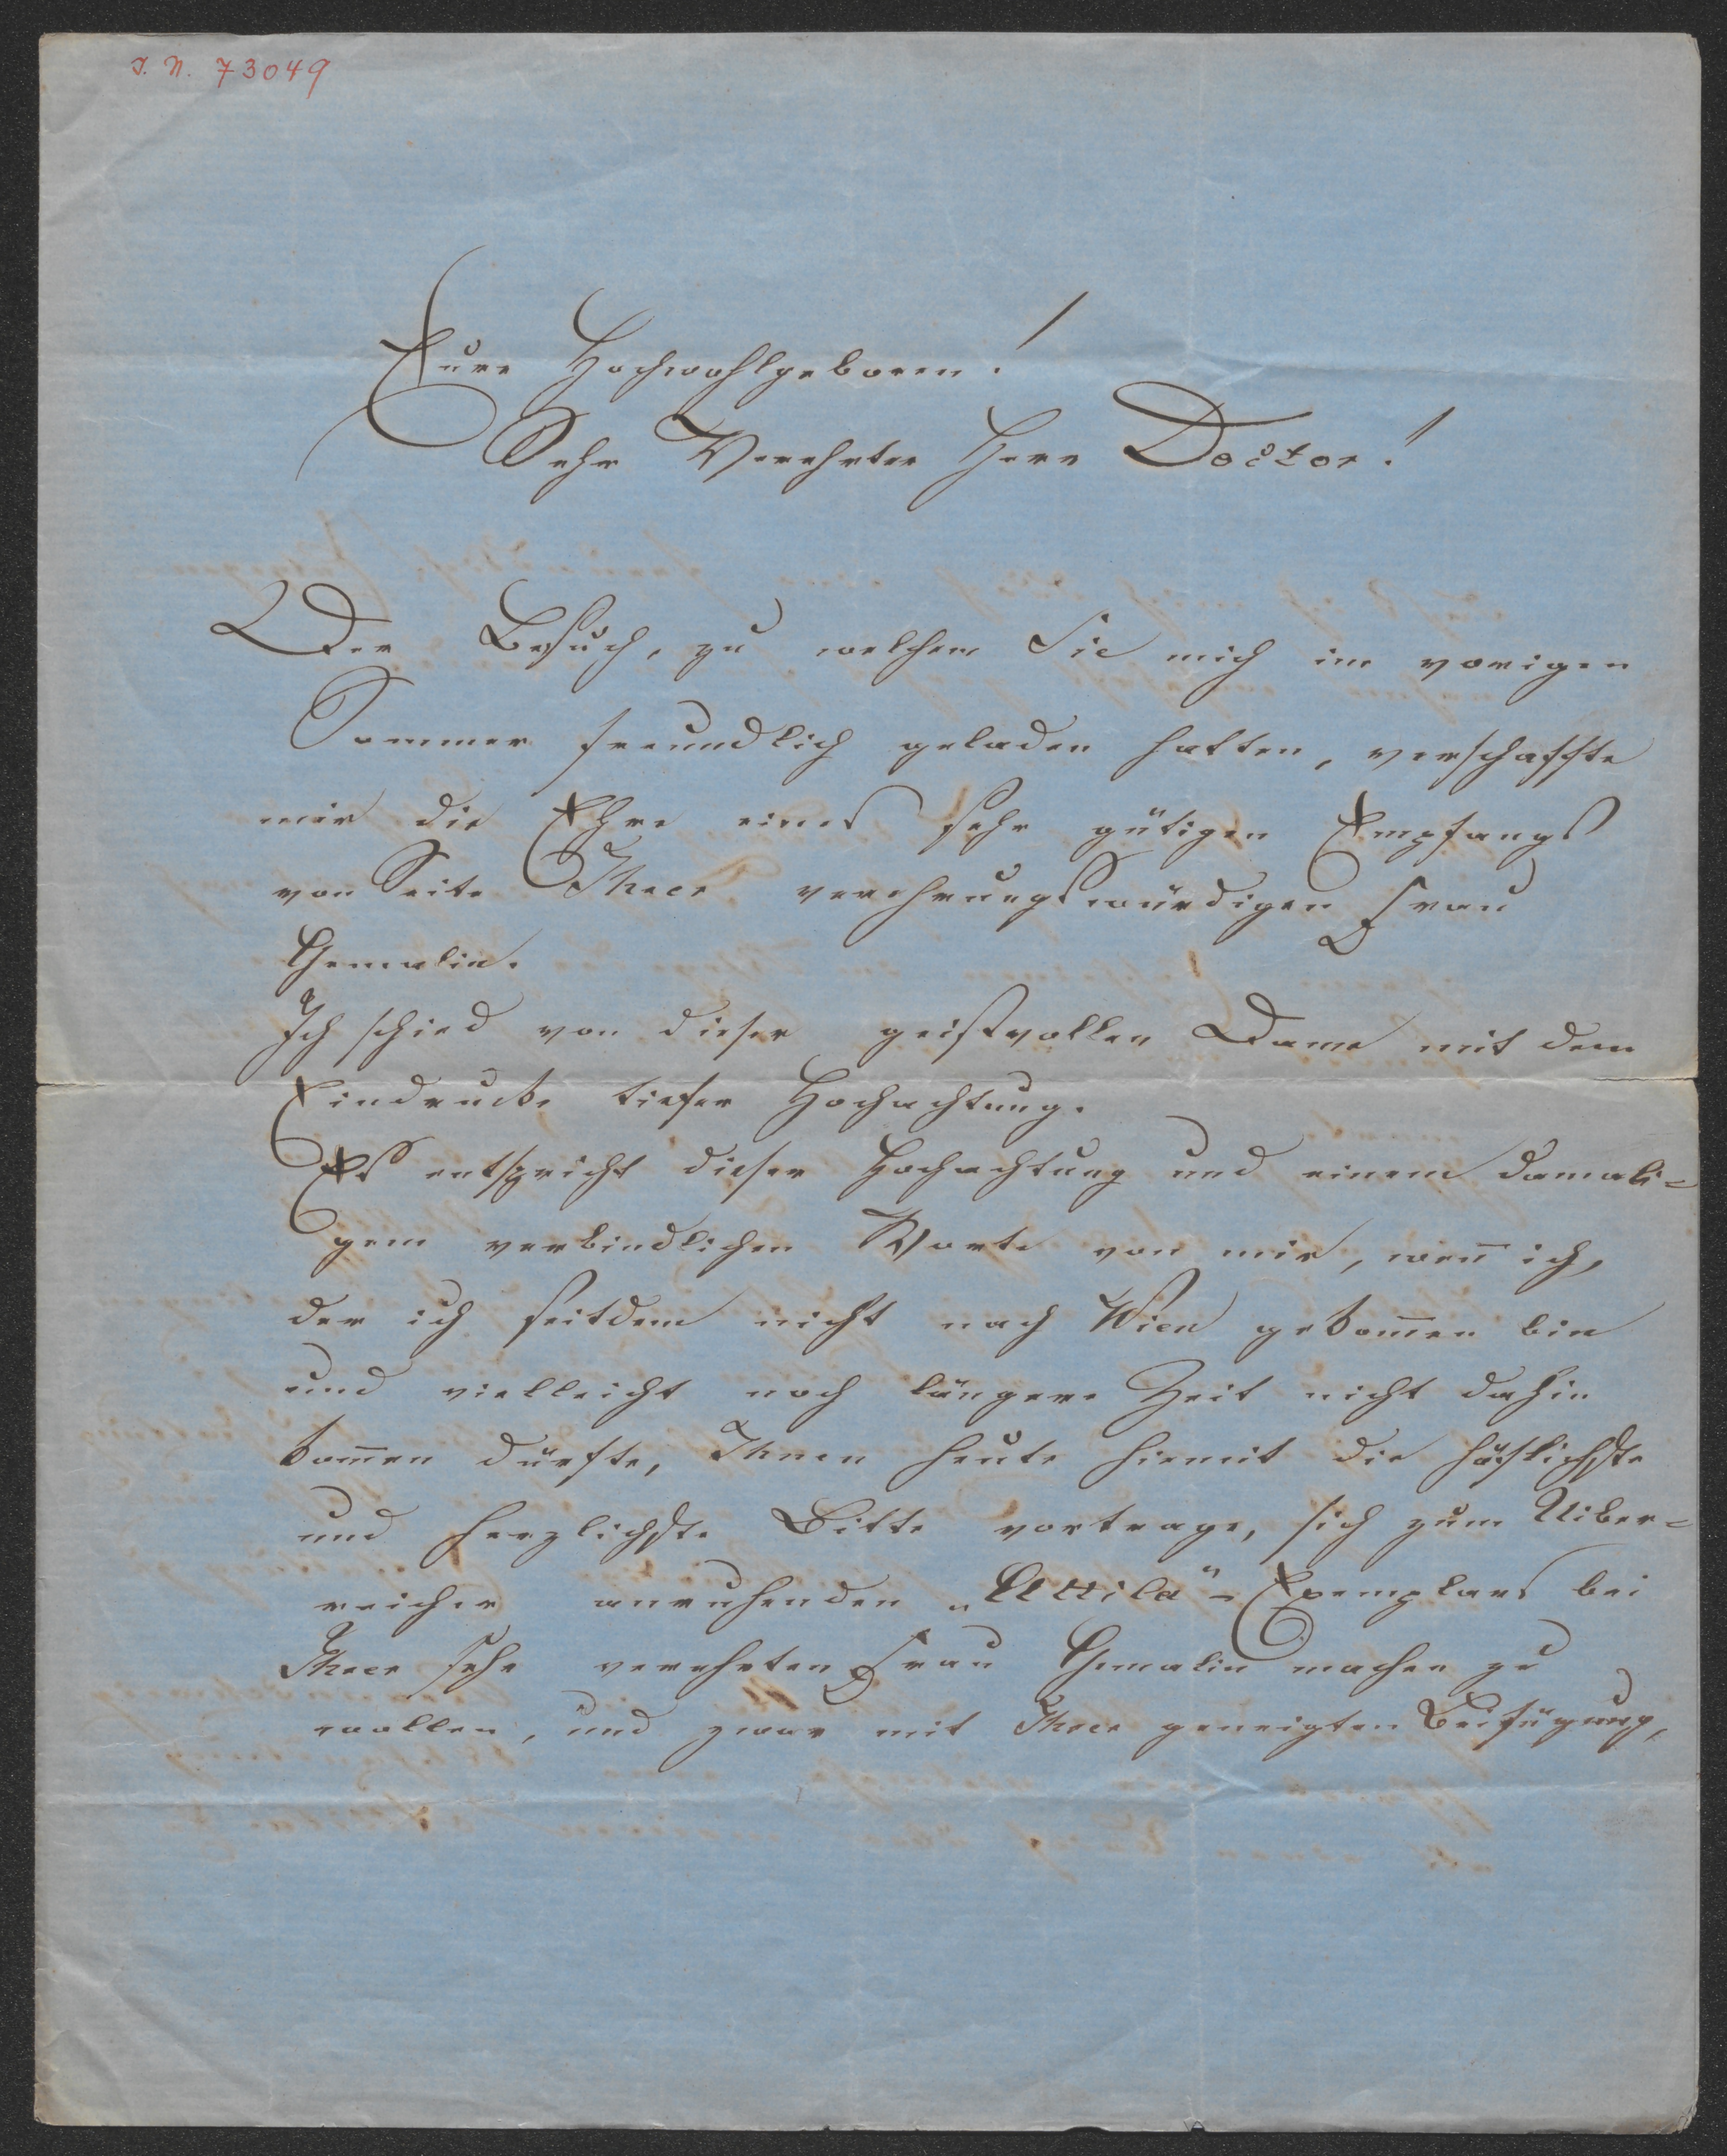 I. N. 73049
Eure Hochwohlgeboren!
Sehr Verehrter Herr Doctor!
Der Besuch, zu welchem Sie mich im vorigen
Sommer freundlich geladen hatten, verschaffte
mir die Ehre eines sehr gütigen Empfangs
von Seite Ihrer verehrungswürdigen Frau
Gemalin.
Ich schied von dieser geistvollen Dame mit dem
Eindrucke tiefer Hochachtung.
Es entspricht dieser Hochachtung und einem damali=
gem verbindlichen Worte von mir, weñ ich,
der ich seitdem nicht nach Wien gekom̅en bin
und vielleicht noch längere Zeit nicht dahin
kom̅en dürfte, Ihnen heute hiemit die höflichste
und herzlichste Bitte vortrage, sich zum Uiber=
reicher anruhenden „Attila"-Exemplars bei
Ihrer sehr verehrten Frau Gemalin machen zu
wollen, und zwar mit Ihrer geneigten Beifügung,